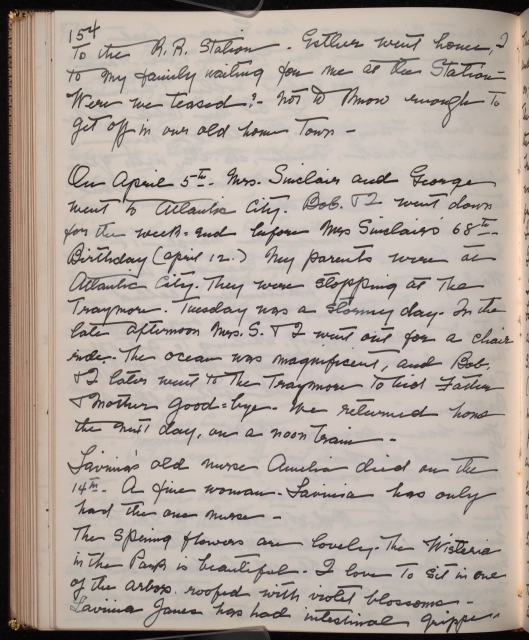 154
To the R.R. Station. Esther went home, I
to my family waiting for me at the Station -
Were we teased? - not to know enough to
get off in our old home Town -
On April 5th. Mrs. Sinclair and George
went to Atlantic City. Bob. & I went down
for the week=end before Mrs Sinclair's 68th-
Birthday (April 12.) My parents were at
Atlantic City. They were stopping at The
Traymore. Tuesday was a stormy day. In the
late afternoon Mrs. S. & I went out for a chair
ride. The ocean was magnificent, and Bob.
& I later went to The Traymore To bid Father
& Mother Good=bye. We returned home
the next day, on a noon train -
Lavinia's old nurse Amelia died on the
14th. A fine woman. Lavinia has only
had the one nurse -
The Spring flowers are lovely. The Wisteria
in the Park is beautiful - I love To sit in one
of the arbors roofed with violet blossoms -
Lavinia Janes has had intestinal grippe -